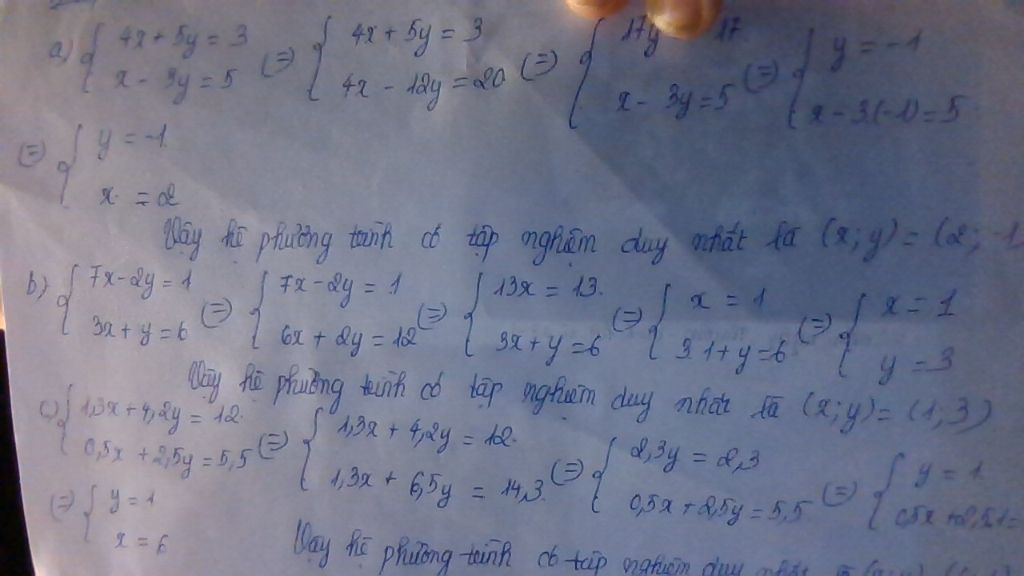 a) { 4x + 5y = 3 ; x - 3y = 5 (=) { 4x + 5y = 3 ; 4x - 12y = 20 (=) { 17y 17 ; x - 3y = 5 (=) { y = -1 ; x - 3.(-1) = 5
(=) { y = -1 ; x = 2
Vậy hệ phương trình có tập nghiệm duy nhất là (x; y) = (2; -1
b) { 7x - 2y = 1 ; 3x + y = 6 (=) { 7x - 2y = 1 ; 6x + 2y = 12 (=) { 13x = 13 ; 3x + y = 6 (=) { x = 1 ; 3.1 + y = 6 (=) { x = 1 ; y = 3
Vậy hệ phương trình có tập nghiệm duy nhất là (x; y) = (1; 3)
c) { 1,3x + 4,2y = 12 ; 0,5x + 2,5y = 5,5 (=) { 1,3x + 4,2y = 12 ; 1,3x + 6,5y = 14,3 (=) { 2,3y = 2,3 ; 0,5x + 2,5y = 5,5 (=) { y = 1 ; 0,5x + 2,5.1 =
(=) { y = 1 ; x = 6
Vậy hệ phương trình có tập nghiệm duy nhất là